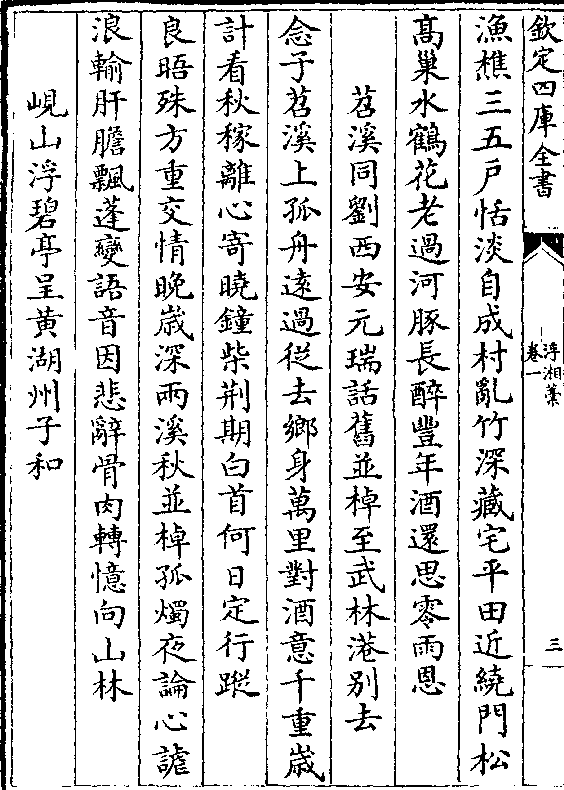 欽定四庫全書
浮湘藁
卷一
三
漁樵三五戶恬淡自成村亂竹深藏宅平田近繞門松
髙巢水鶴花老過河豚長醉豐年酒還思零雨恩
苕溪同劉西安元瑞話舊並棹至武林港别去
念子苕溪上孤舟遠過從去鄉身萬里對酒意千重歲
計看秋稼離心寄曉鐘柴荆期白首何日定行蹤
良晤殊方重交情晚歲深兩溪秋並棹孤燭夜論心謔
浪輸肝膽飄蓬變語音因悲辭骨肉轉憶向山林
峴山浮碧亭呈黄湖州子和